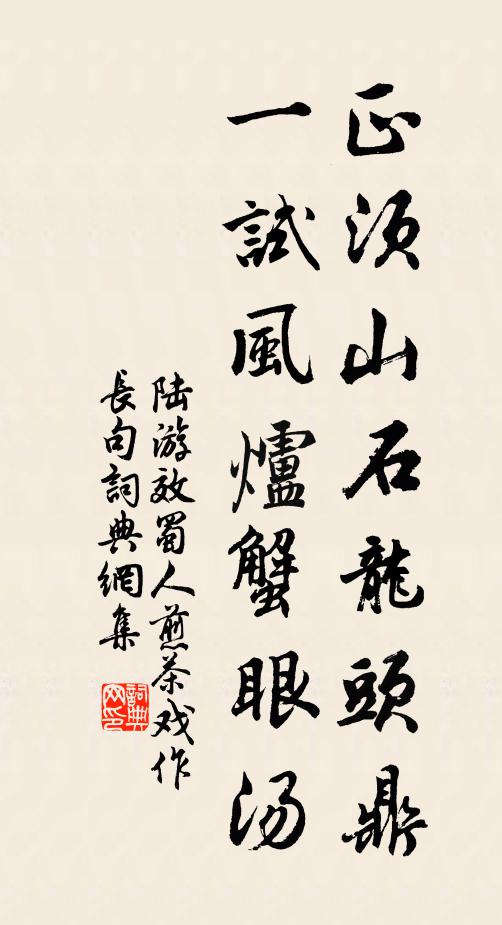 正须山石龍頭鼎
一試風爐蟹眼汤
陆游效蜀人煎茶戏作
長句詞典網集
詞典网印